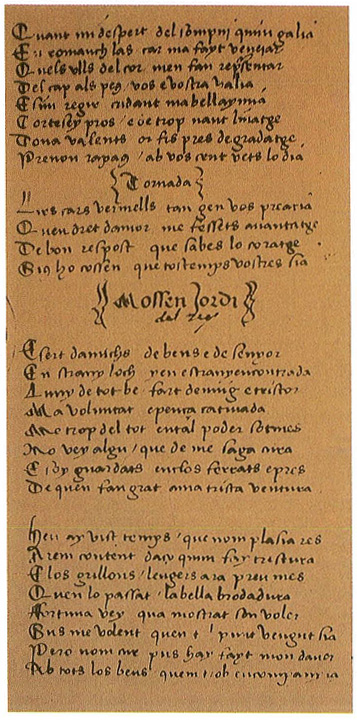 Quant mi despert del sompni quim galia
E yo romanch las car ma fayt veneiar
Quels ulls del cor men fan repsentar
Del cap als peus vos e vostra valia
E sim regir cridant mabellaymia
Cortes ey pros e de trop naut linatge
Dona valents or fis pres de gradatge
Prenon rapaus ab vos cent vets lo dia
Tornada
Lirs cars vermells tan gen vos prearia
Quen dret damor me fessets avantatge
De bon respost que sabes lo coratge
Si us ho cossen que tostemps vostres sia
Mossen Jordi
del rey
Desert damichs de bens e de senyor
En strany loch y en estranyencontrada
Luny de tot be fart denuig e tristor
Ma voluntat e pença cativada
Me trop del tot en tal poder sotmes
No vey algu que de me saga cura
E soy guardats enclos ferrats e pres
De quen fau grat a ma trista ventura
Heu ay vist temps que nom plasia res
Arem content daço quim fay tristura
E los grillons leugers ara preu mes
Quen lo passat la bella brodadura
Fortuna vey qua mostrat son voler
Sus me volent quen t punt vengut sia
Pero nom cur pus hay fayt mon dever
Ab tots los bens quem trob en companyia